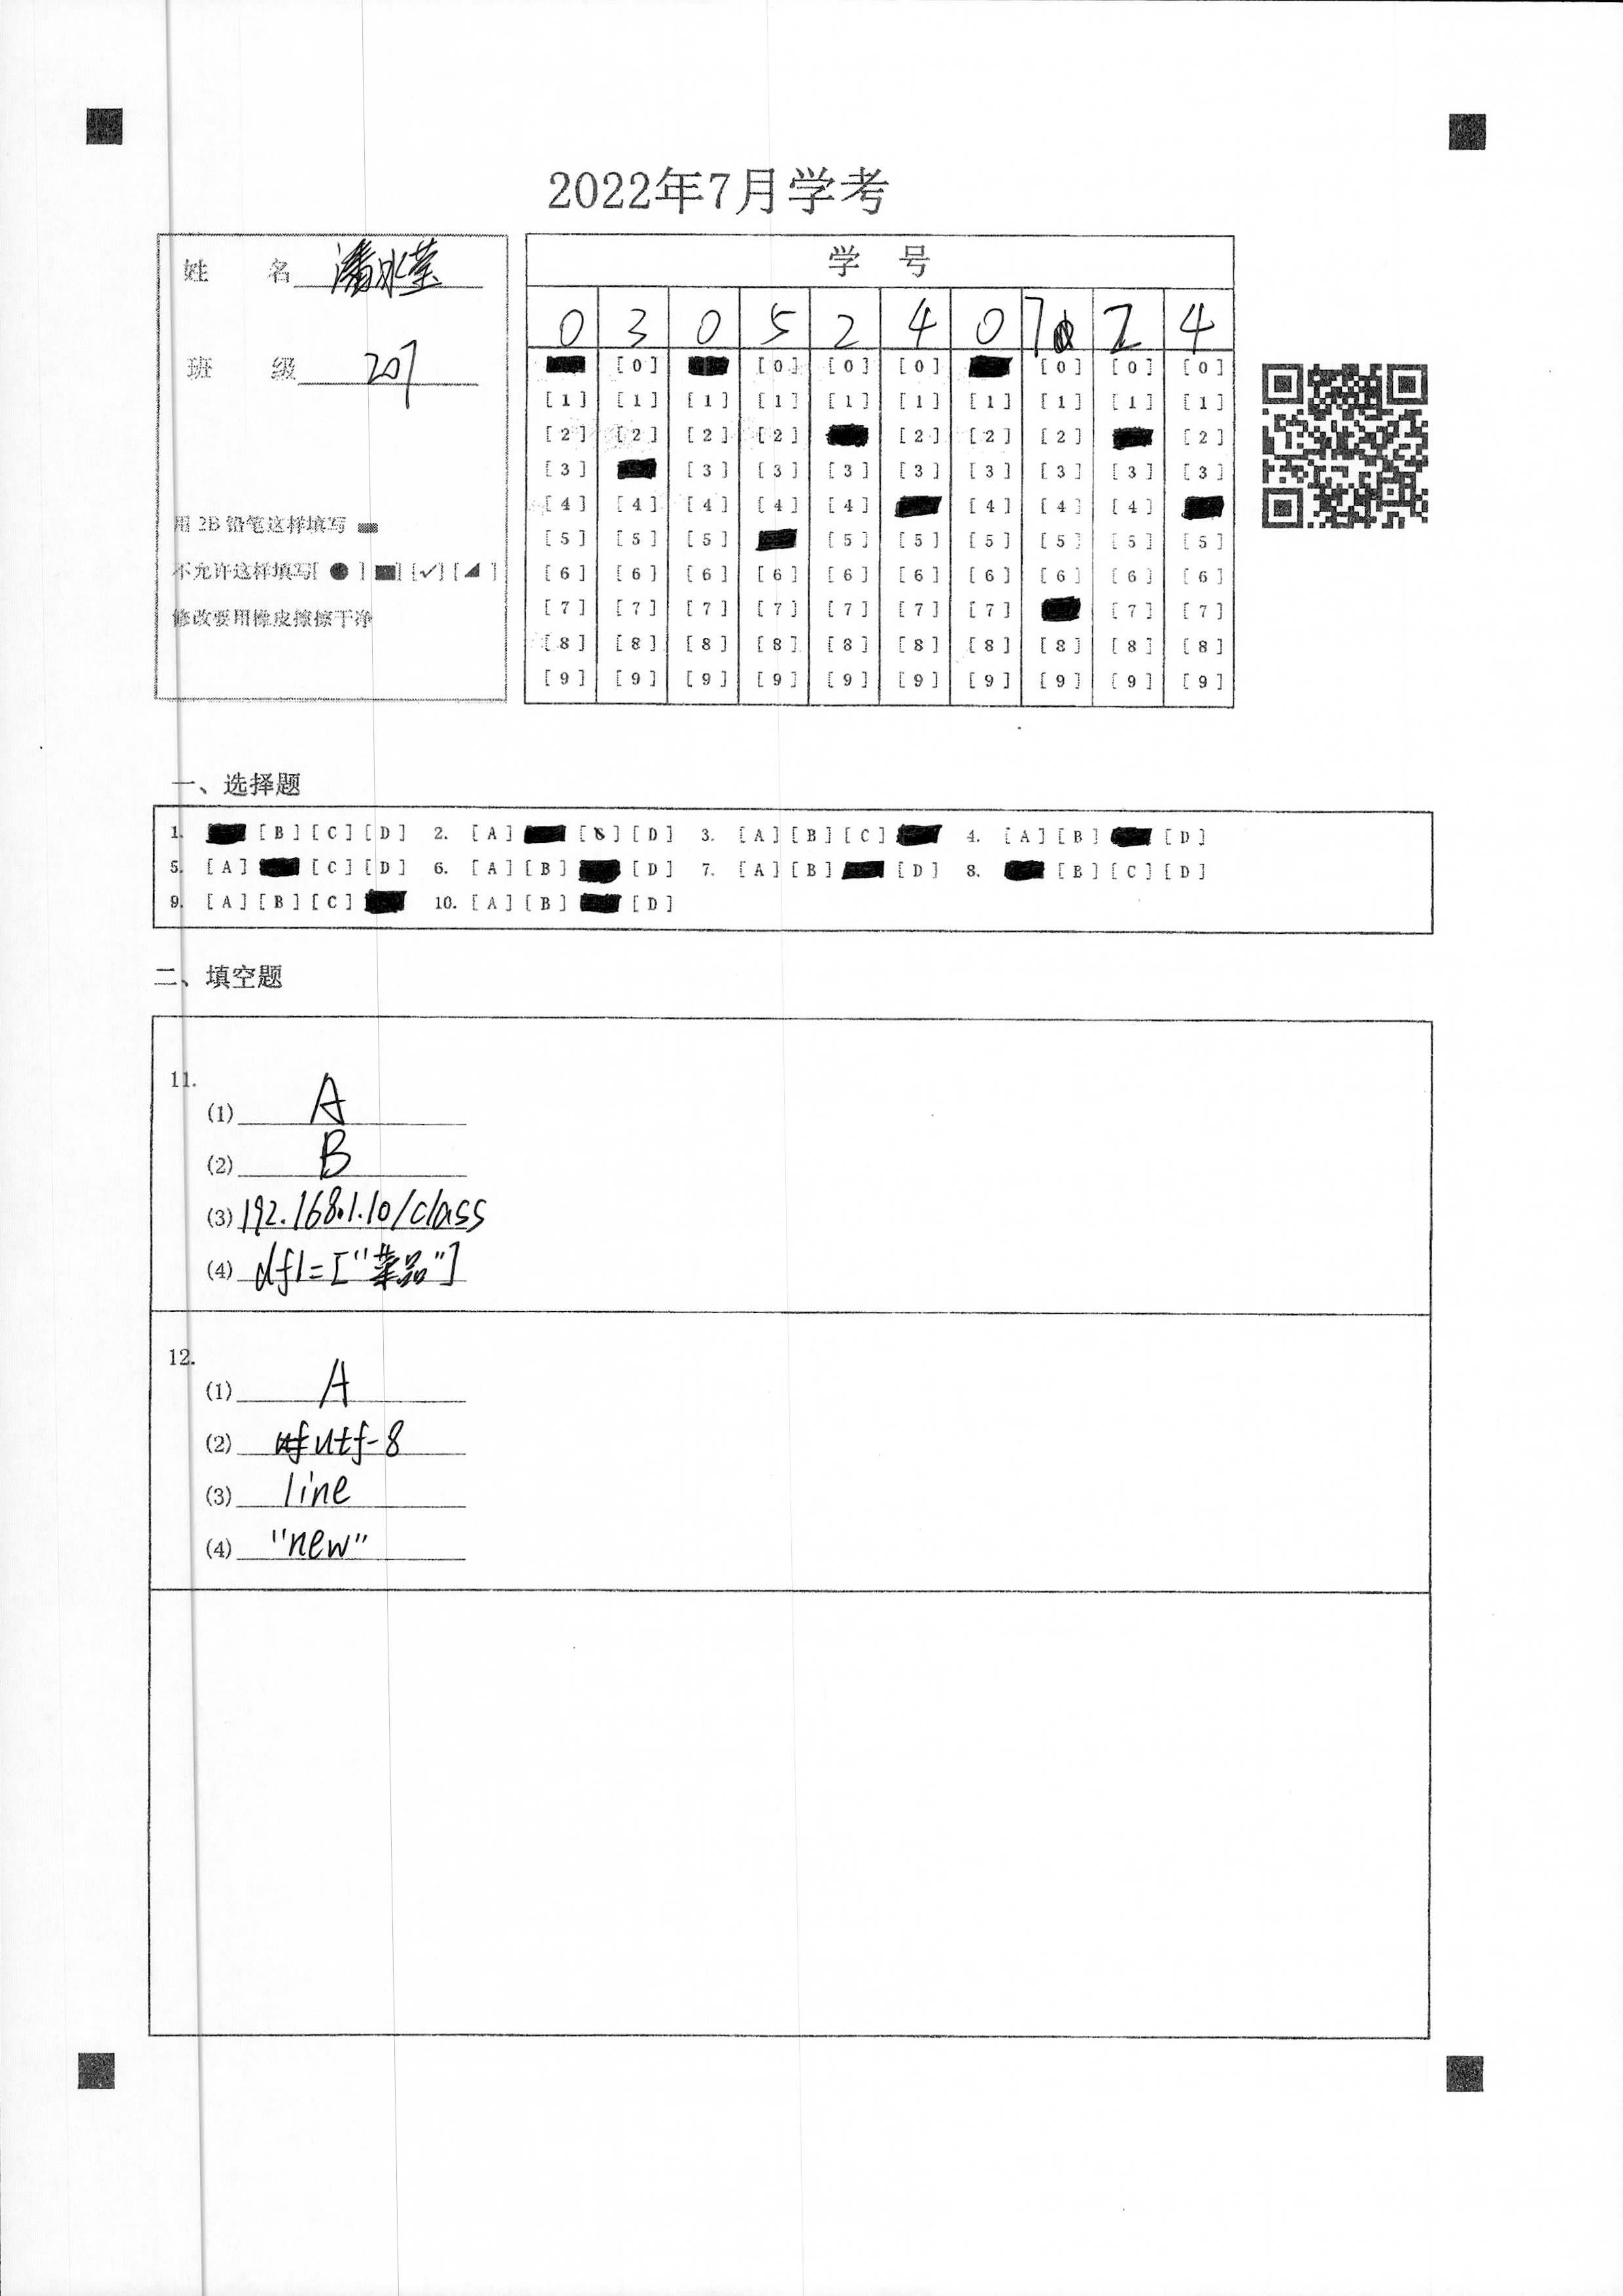 2022年7月学考
姓 名 潘冰莹
班 级 207
用 2B 铅笔这样填写
不允许这样填写[ ● ] [■] [✓] [◢ ]
修改要用橡皮擦擦干净
学 号
0 3 0 5 2 4 0 7 2 4
[0] [0] [0] [0] [0] [0] [0]
[1] [1] [1] [1] [1] [1] [1] [1] [1] [1]
[2] [2] [2] [2] [2] [2] [2] [2]
[3] [3] [3] [3] [3] [3] [3] [3] [3]
[4] [4] [4] [4] [4] [4] [4] [4]
[5] [5] [5] [5] [5] [5] [5] [5] [5]
[6] [6] [6] [6] [6] [6] [6] [6] [6] [6]
[7] [7] [7] [7] [7] [7] [7] [7] [7]
[8] [8] [8] [8] [8] [8] [8] [8] [8] [8]
[9] [9] [9] [9] [9] [9] [9] [9] [9] [9]
一、选择题
1. [B] [C] [D] 2. [A] [C] [D] 3. [A] [B] [C] 4. [A] [B] [D]
5. [A] [C] [D] 6. [A] [B] [D] 7. [A] [B] [D] 8. [B] [C] [D]
9. [A] [B] [C] 10. [A] [B] [D]
二、填空题
11.
(1) A
(2) B
(3) 192.168.1.10/class
(4) df1=["菜品"]
12.
(1) A
(2) utf-8
(3) line
(4) "new"